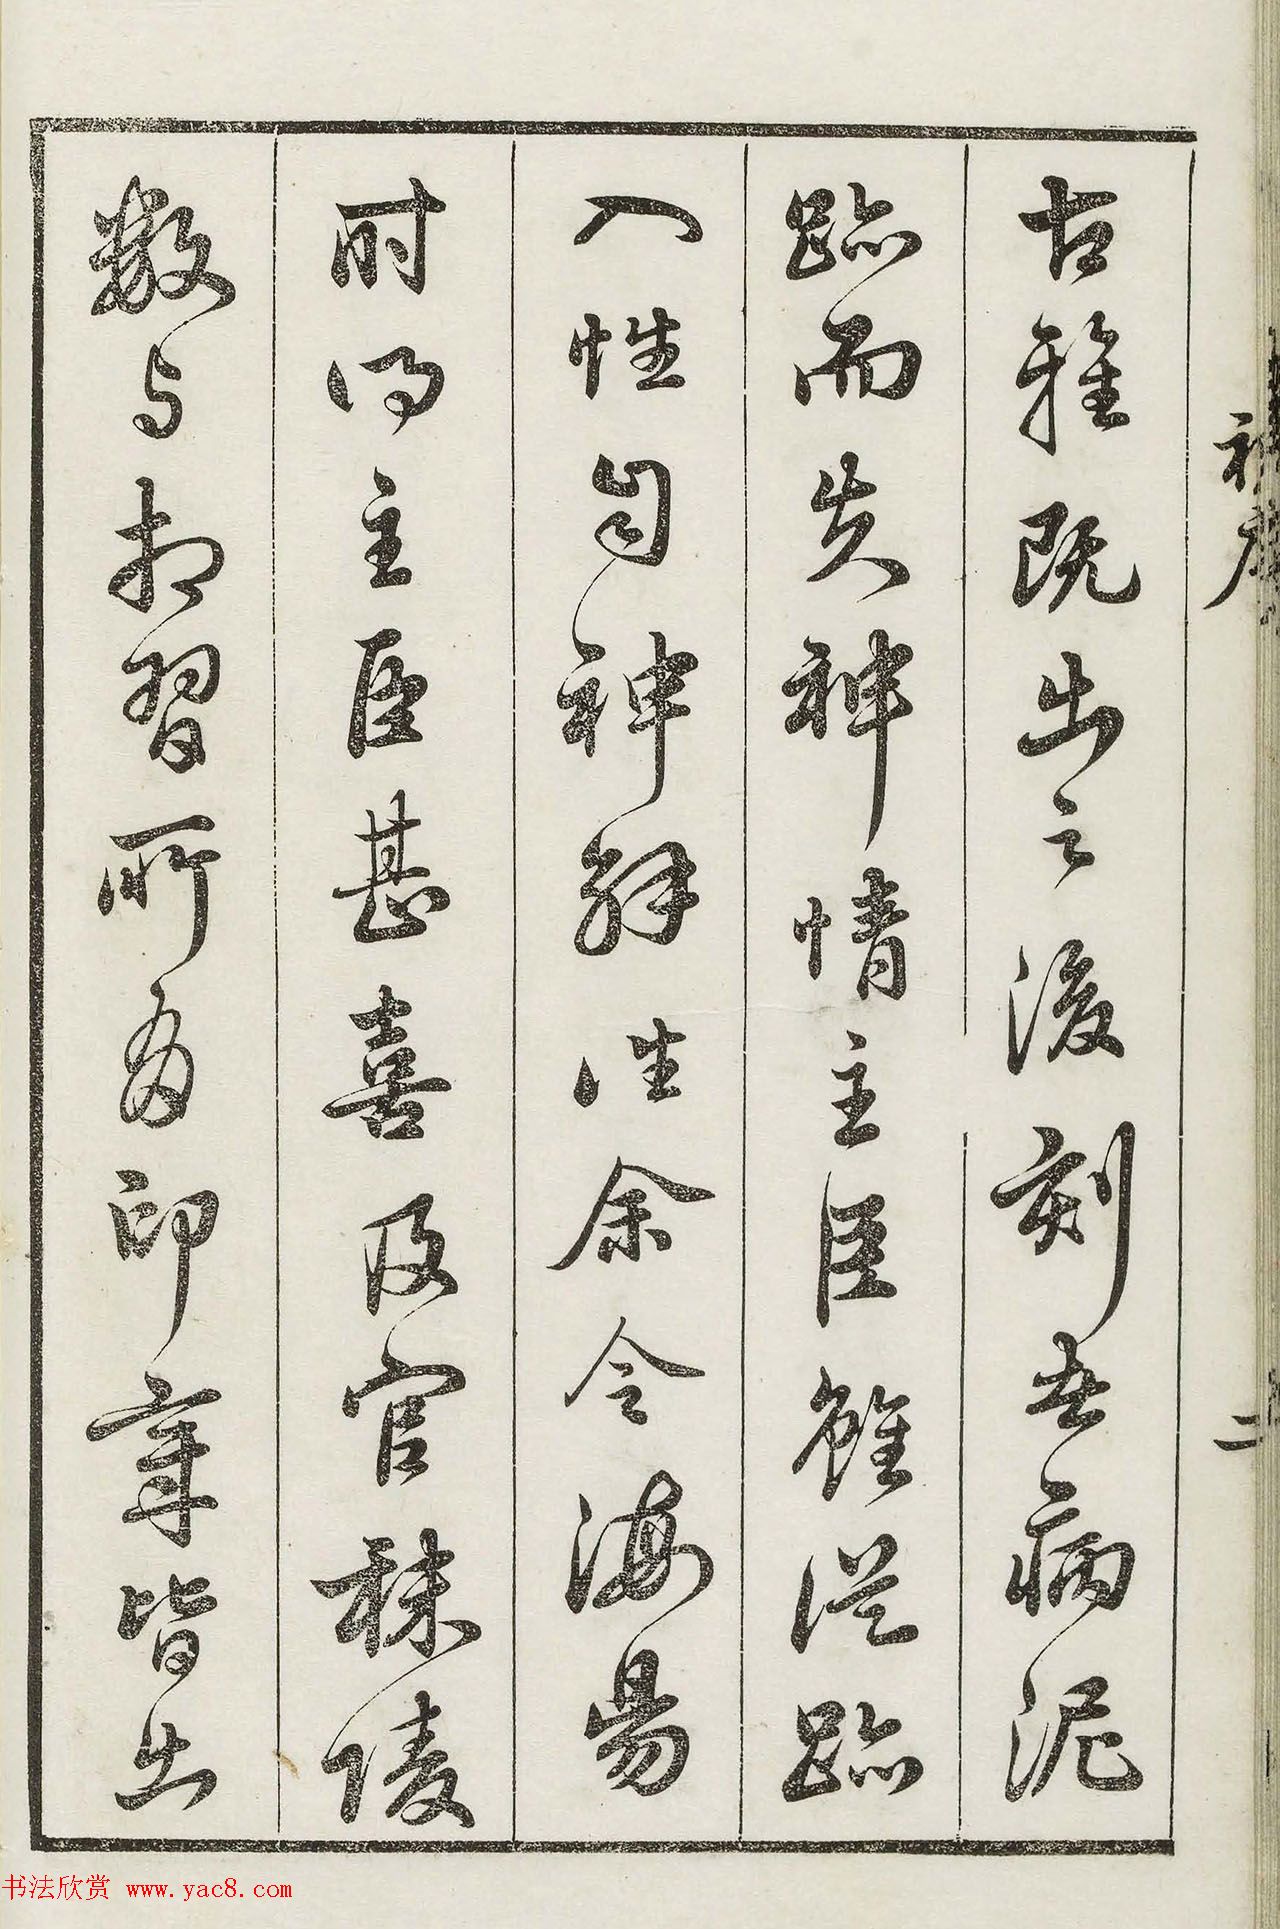 古雅既出之後刻者病泥
跡而失神情主臣雖從跡
入性自神解往余令海陽
時得主臣甚喜及官秣陵
數與相習所為印章皆出
二
书法欣赏 www.yac8.com